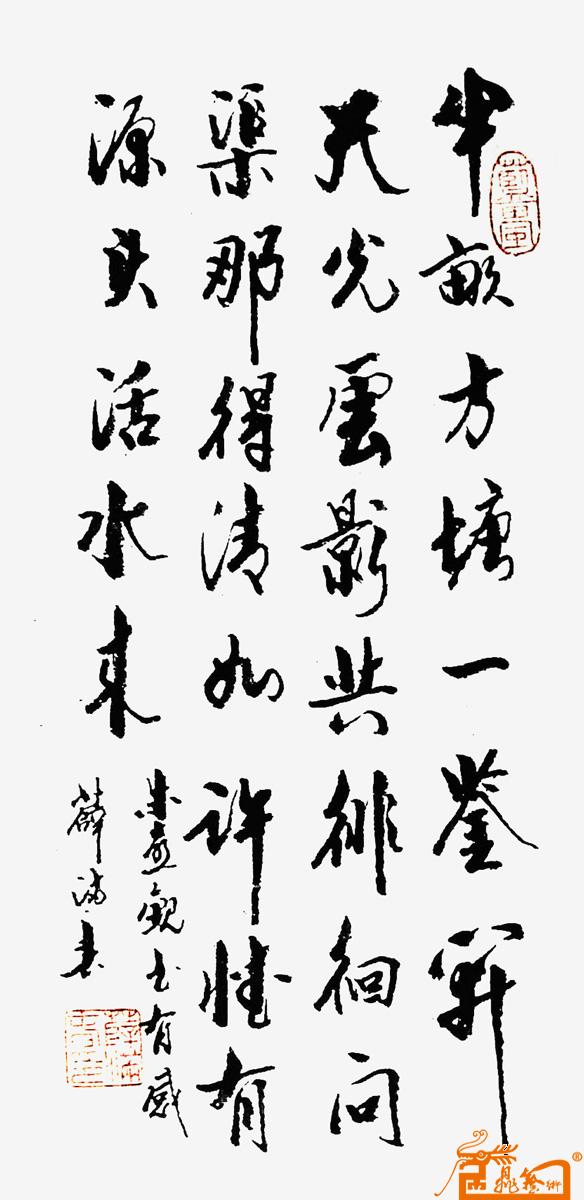 半畝方塘一鉴開
天光雲影共徘徊问
渠那得清如许惟有
源头活水来
朱熹觀书有感
薛满春